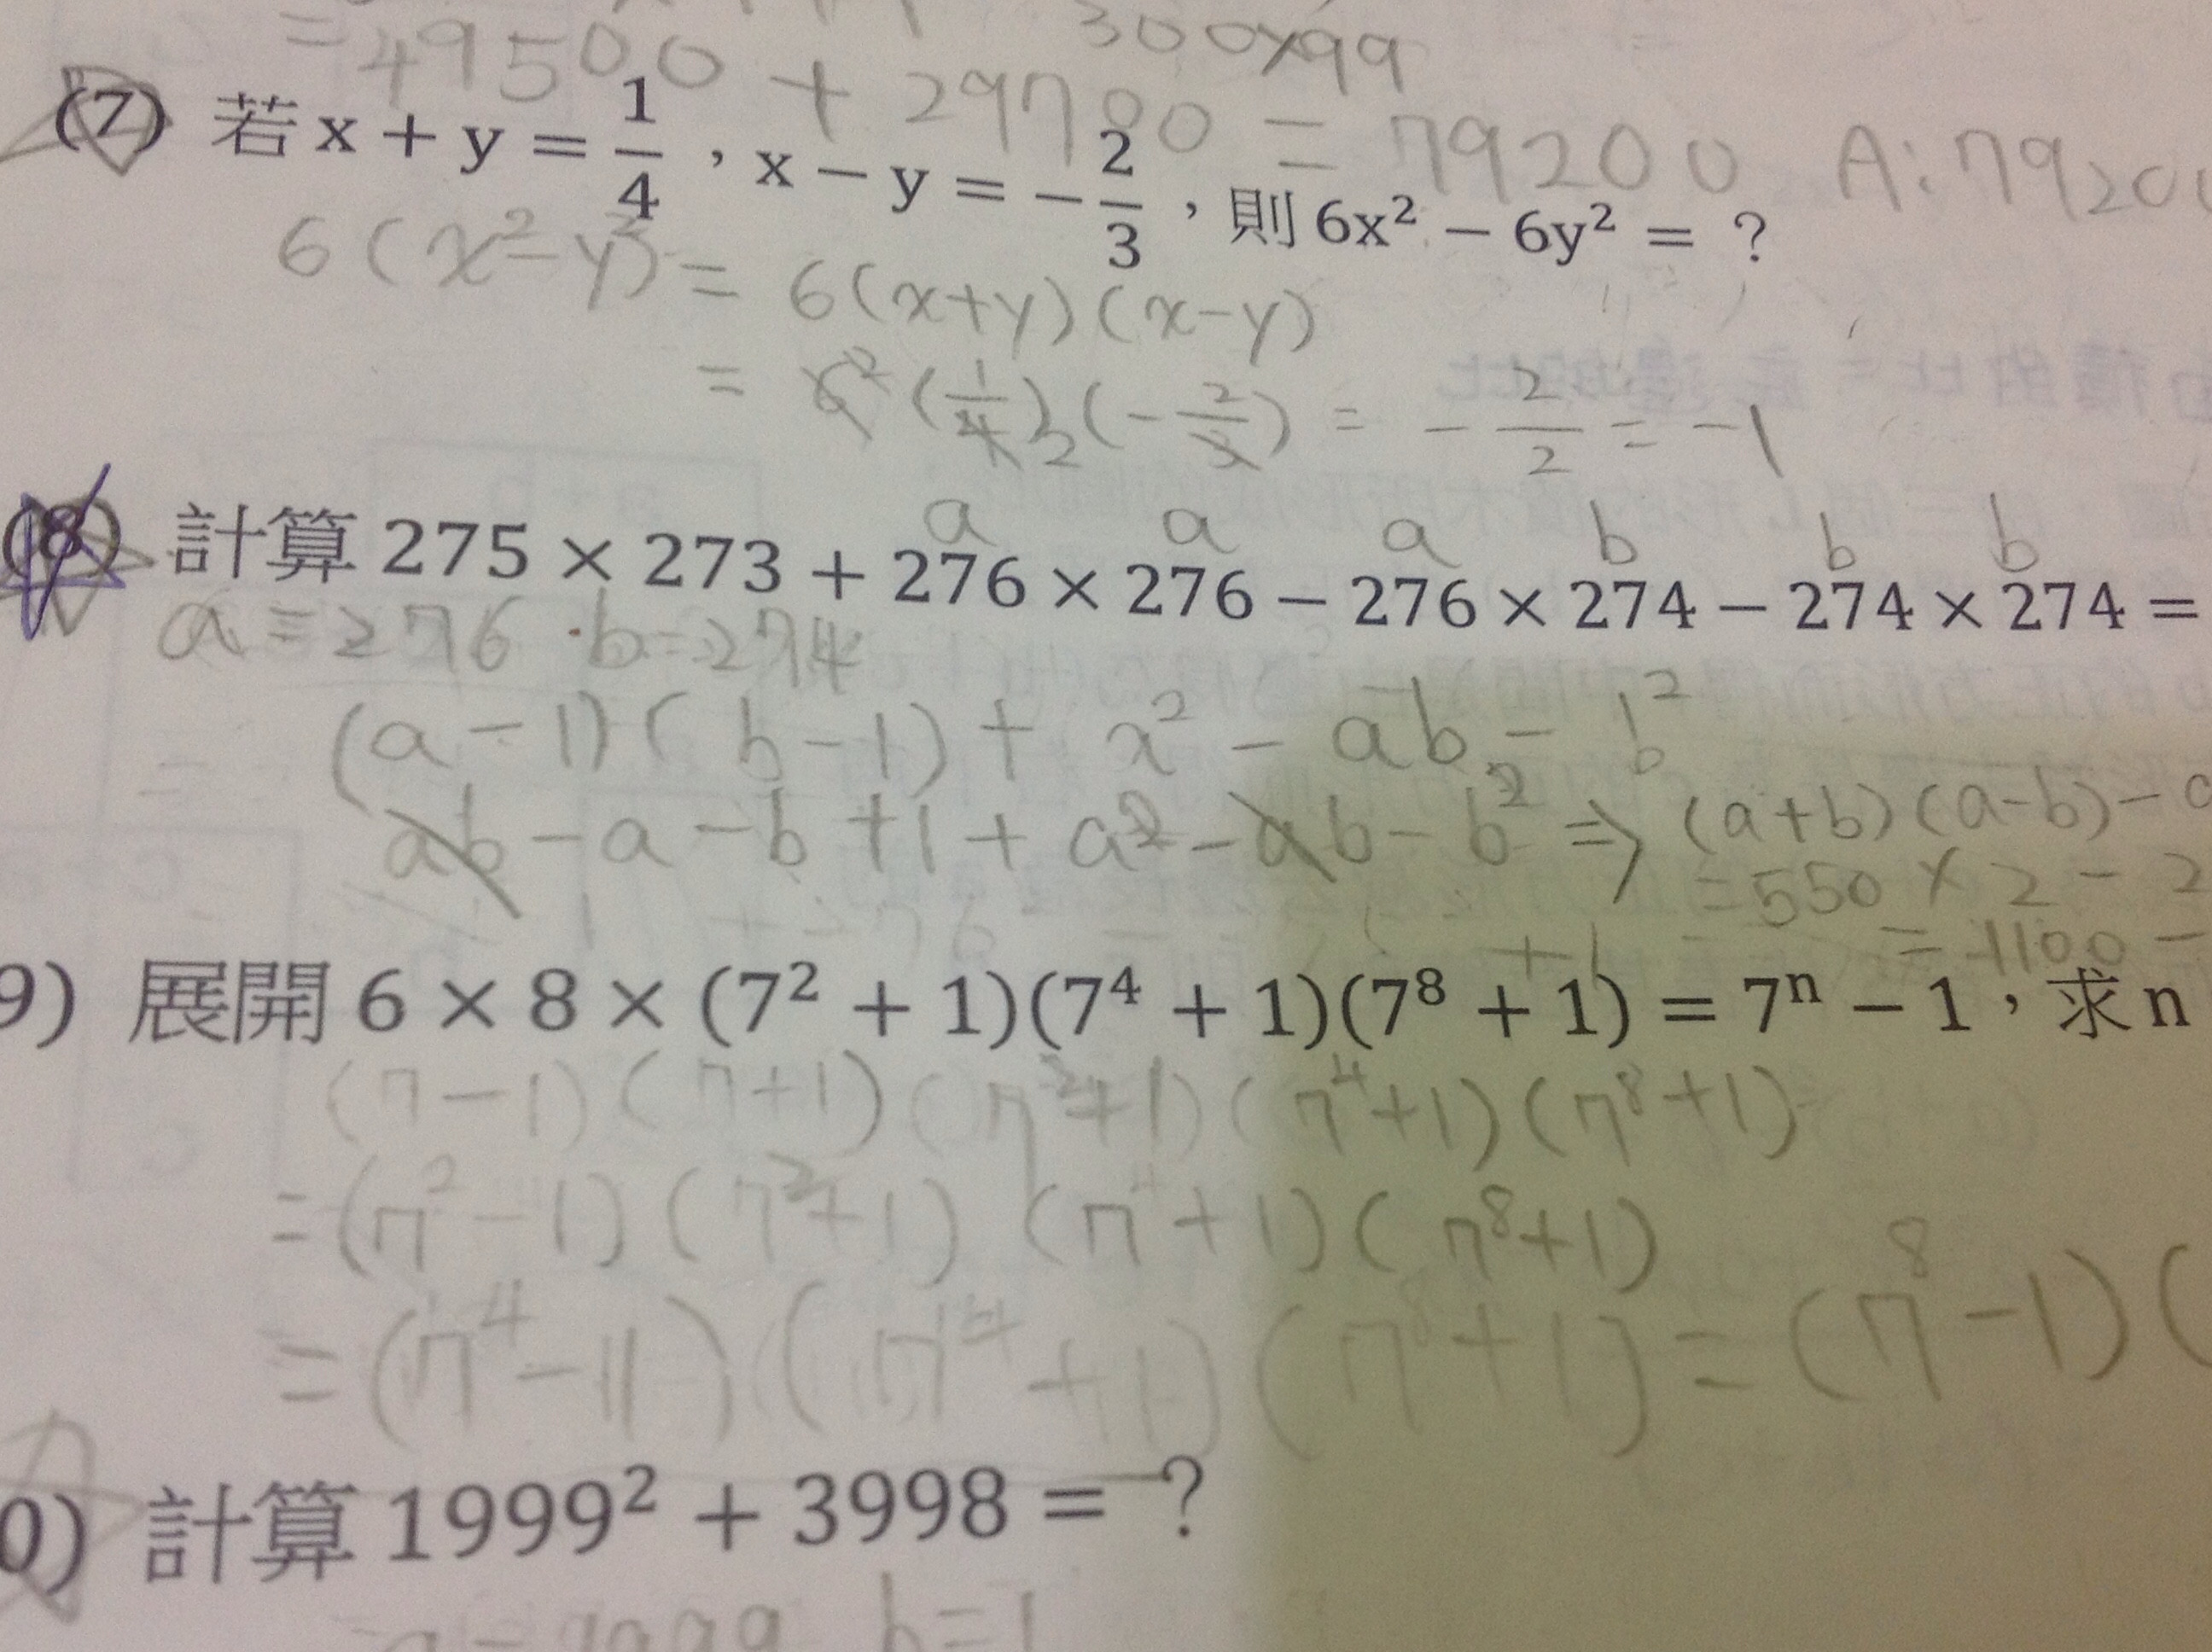 300×99
= 49500 + 29700 = 79200 A: 79200
(7) 若 x + y = 1/4，x − y = −2/3，則 6x² − 6y² = ？
6(x²−y²) = 6(x+y)(x−y)
= 6²(1/4)₂(−2/3) = −2/2 = −1
(8) 計算 275 × 273 + 276 × 276 − 276 × 274 − 274 × 274 =
a a a b b b
a = 276 b = 274
(a−1)(b−1) + x² − ab − b²
ab − a − b + 1 + a² − ab − b² ⇒ (a+b)(a−b) −
= 550 × 2 − 2
= 1100 −
9) 展開 6 × 8 × (7² + 1)(7⁴ + 1)(7⁸ + 1) = 7ⁿ − 1，求 n
(7−1)(7+1)(7²+1)(7⁴+1)(7⁸+1)
= (7²−1)(7²+1)(7⁴+1)(7⁸+1)
= (7⁴−1)(7⁴+1)(7⁸+1) = (7⁸−1)(
0) 計算 1999² + 3998 = ？
b=1